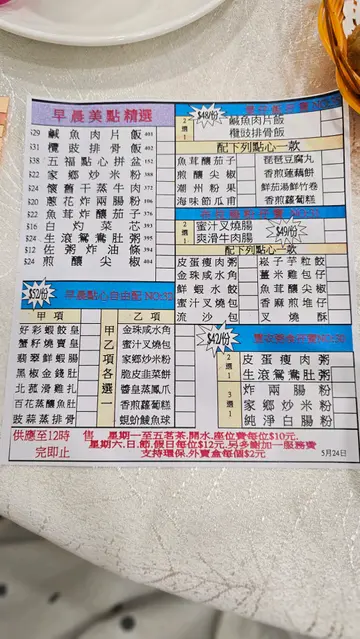 早晨美點精選
$29 鹹魚肉片飯 401
$31 欖豉排骨飯
$38 五福點心拼盆 152
$22 家鄉炒米粉 388
$24 懷舊干蒸牛肉 372
$20 蔥花炸兩腸粉 306
$22 魚茸炸釀茄子 376
$16 白灼菜芯 393
$24 生滾鴛鴦肚粥 395
$12 佐粥炸油條 394
$24 煎釀尖椒 404
$48/份
2選1
鹹魚肉片飯
欖豉排骨飯
配下列點心一款
魚茸釀茄子 琵琶豆腐丸
煎釀尖椒 香煎蓮藕餅
潮州粉果 鮮茄湯鮮竹卷
海味節瓜甫 香煎蘿蔔糕
$49/份
2選1
蜜汁叉燒腸
爽滑牛肉腸
配下列點心一款
皮蛋瘦肉粥 崧子芋粒餃
金珠咸水角 薑米雞包仔
鮮蝦水餃 鼓汁釀三寶
蜜汁叉燒包 香麻煎堆仔
流沙包 叉燒酥
$52/份
早晨點心自由配 NO:32
甲項 乙項
甲乙項各選一
好彩蝦餃皇 金珠咸水角
蟹籽燒賣皇 蜜汁叉燒包
翡翠鮮蝦腸 家鄉炒米粉
黑椒金錢肚 脆皮韭菜餅
北菰滑雞扎 醬皇蒸鳳爪
百花蒸釀魚肚 香煎蘿蔔糕
豉蒜蒸排骨 蜆蚧鯪魚球
$42/份
2選1
皮蛋瘦肉粥
生滾鴛鴦粥
3選1
炸兩腸粉
家鄉炒米粉
純淨白腸粉
供應至12時 售完即止
星期一至五茗茶.開水.座位費每位$10元.
星期六.日.節.假日每位$12元.另多謝加一服務費
支持環保.外賣盒每個$2元
5月24日